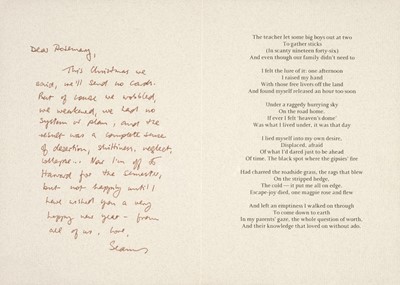 Dear Rosemary,
This Christmas we
said, we'll send no cards.
But of course we wobbled,
we weakened, we had no
system or plan, and the
result was a complete sense
of desertion, shiftiness, neglect,
collapse... Now I'm off to
Harvard for the semester,
but not happily until I
have wished you a very
happy new year - from
all of us. Love,
Seamus
The teacher let some big boys out at two
To gather sticks
(In scanty nineteen forty-six)
And even though one family didn't need to
I felt the lure of it: one afternoon
I raised my hand
With those free livers off the land
And found myself released an hour too soon
Under a raggedy hurrying sky
On the road home.
If ever I felt 'heaven's dome'
Was what I lived under, it was that day
I lied myself into my own desire,
Displaced, afraid
Of what I'd dared just to be ahead
Of time. The black spot where the gipsies' fire
Had charred the roadside grass, the rags that blew
On the stripped hedge,
The cold — it put me all on edge.
Escape-joy died, one magpie rose and flew
And left an emptiness I walked on through
To come down to earth
In my parents' gaze, the whole question of worth,
And their knowledge that loved on without ado.